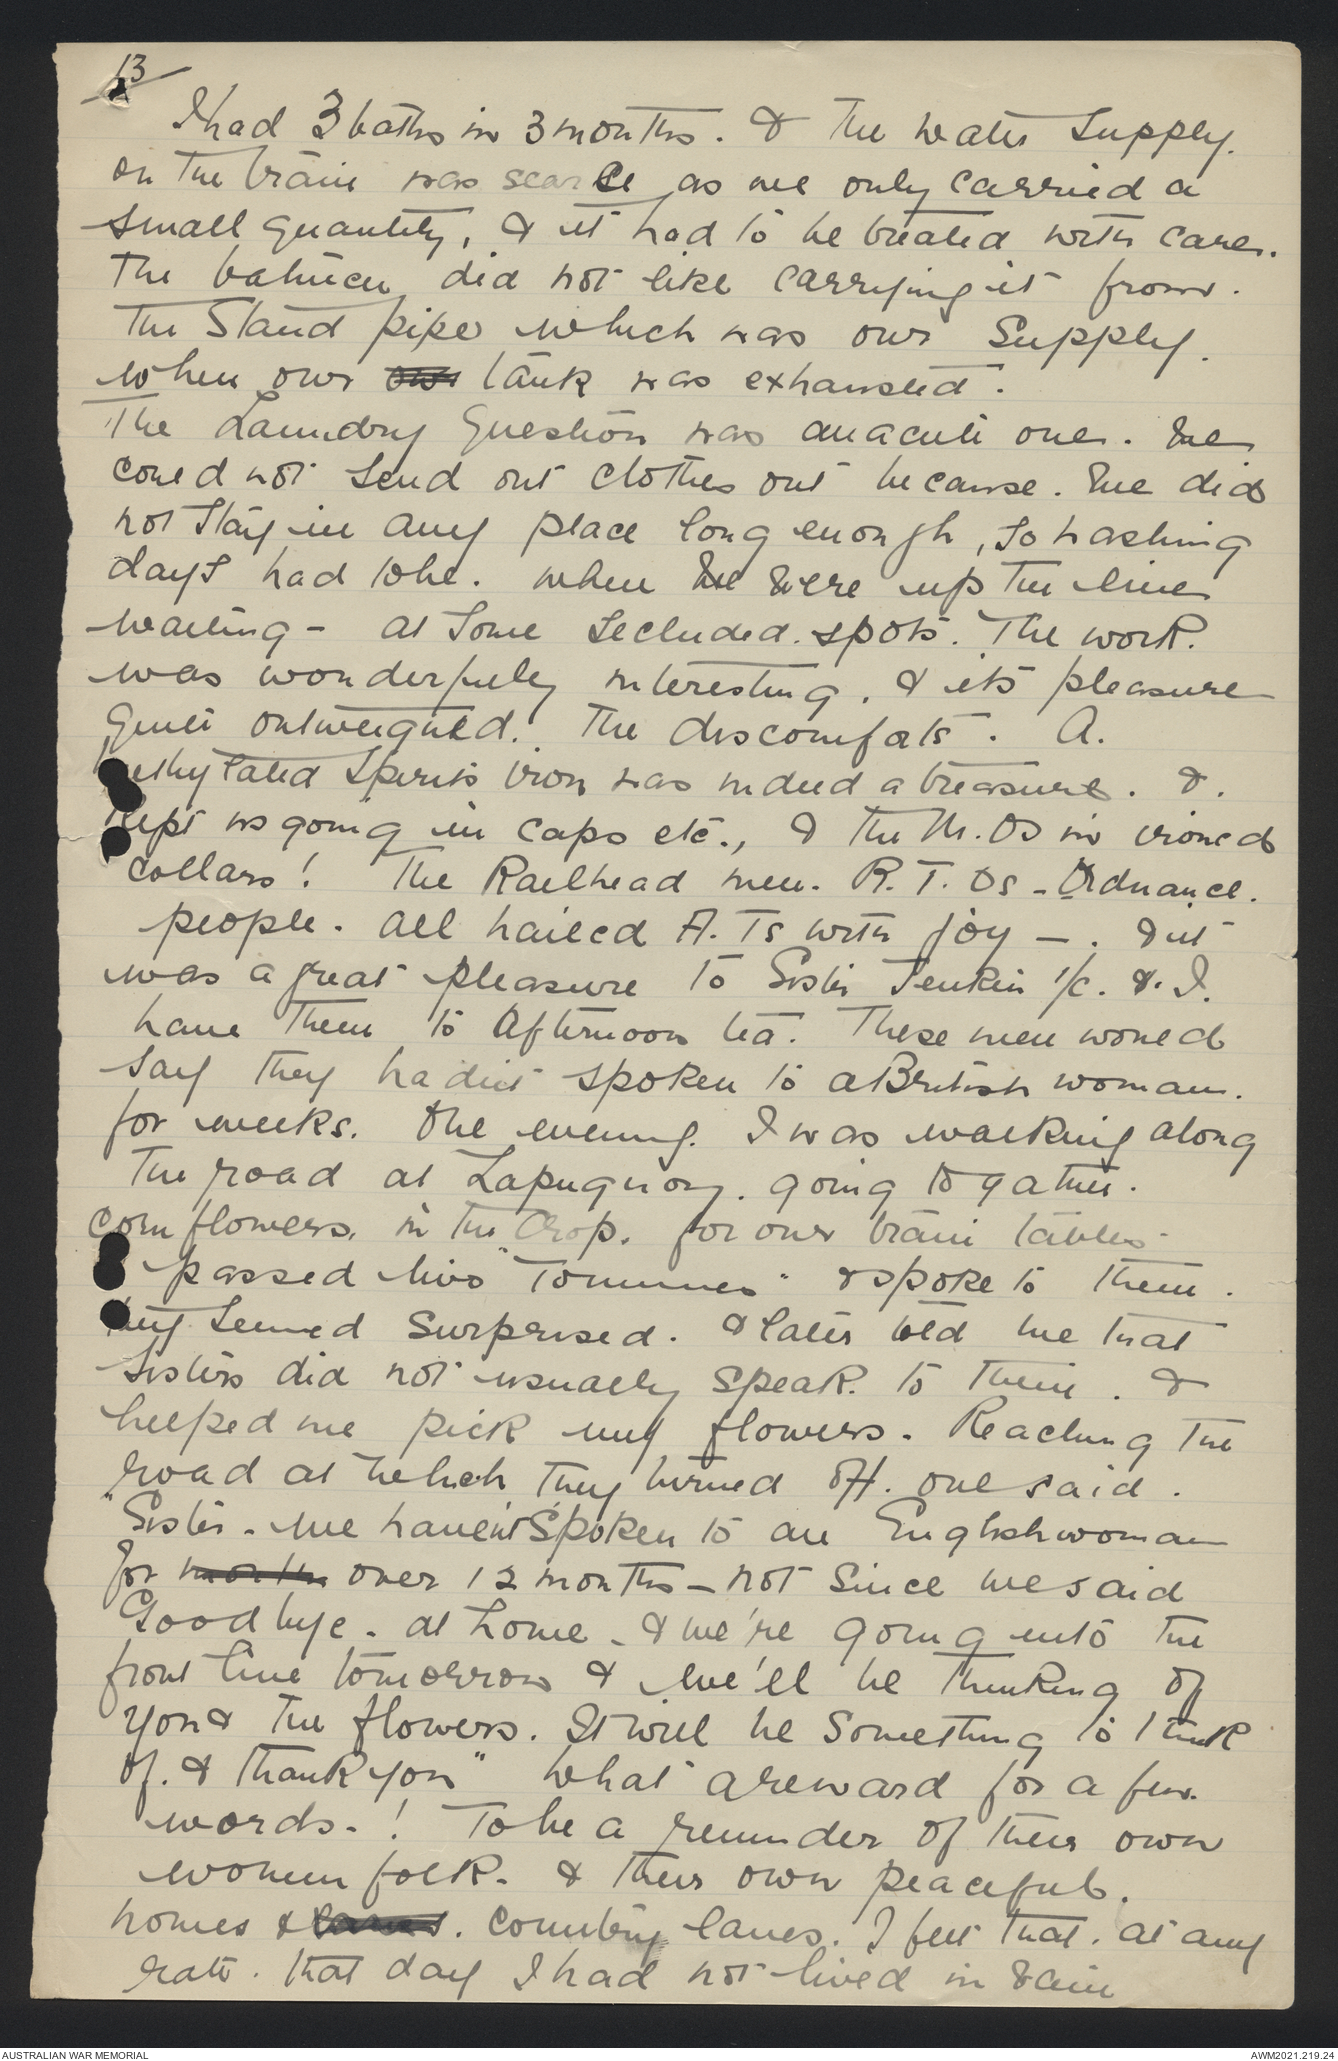 13
I had 3 baths in 3 months. & the water supply.
on the train was scarce as we only carried a
small quantity, & it had to be treated with care.
The batmen did not like carrying it from.
the Stand pipe which was our Supply.
when our our tank was exhausted.
The Laundry Question was an acute one. We
could not Send out clothes out because. We did
not Stay in any place long enough, So washing
days had to be. when We were up the line
waiting - at Some Secluded. spots. The work.
was wonderfully interesting, & its pleasure
quite outweighed. The discomforts. A.
methylated Spirits iron was indeed a treasure. &.
kept us going in caps etc., & the M.Os in ironed
collars! The Railhead men. R.T.Os - Ordnance.
people. all hailed A.Ts with joy -. & it
was a great pleasure to Sister Jenkin i/c. &. I.
have them to Afternoon tea. These men would
say they hadn't spoken to a British woman.
for weeks. One evening. I was walking along
the road at Lapugnoy. going to gather.
cornflowers. in the Crop. for our train tables.
passed two "Tommies" & spoke to them.
they Seemed Surprised. & later told me that
Sisters did not usually Speak. to them. &
helped me pick my flowers. Reaching the
road at which they turned off. one said.
"Sister - We haven't Spoken to an Englishwoman
for months over 12 months - not Since we said
Goodbye. at home - & we're going into the
front line tomorrow & We'll be thinking of
you & the flowers. It will be Something to think
of. & thank you" What a reward for a few.
words. ! To be a reminder of their own
women folk. & their own peaceful.
homes & lanes. country lanes. I felt that. at any
rate. that day I had not lived in vain
AUSTRALIAN WAR MEMORIAL
AWM2021.219.24